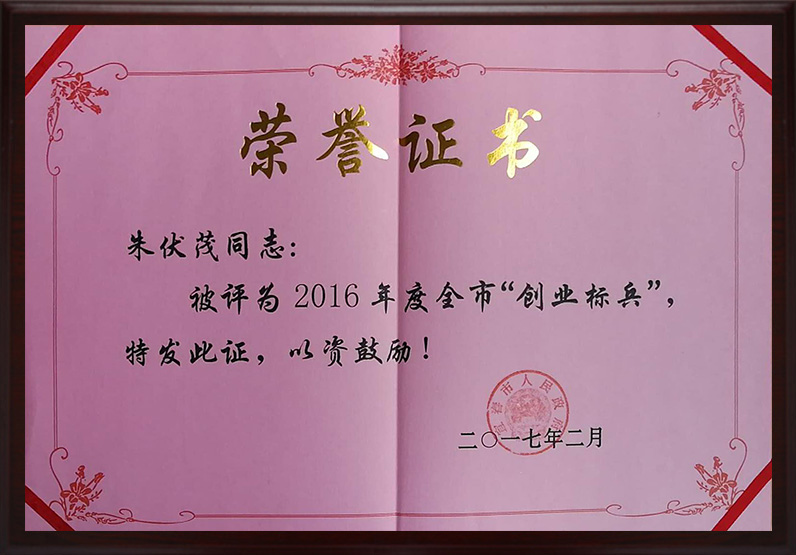 荣誉证书
朱伏茂同志：
被评为2016年度全市“创业标兵”，
特发此证，以资鼓励！
市人民政府
二〇一七年二月